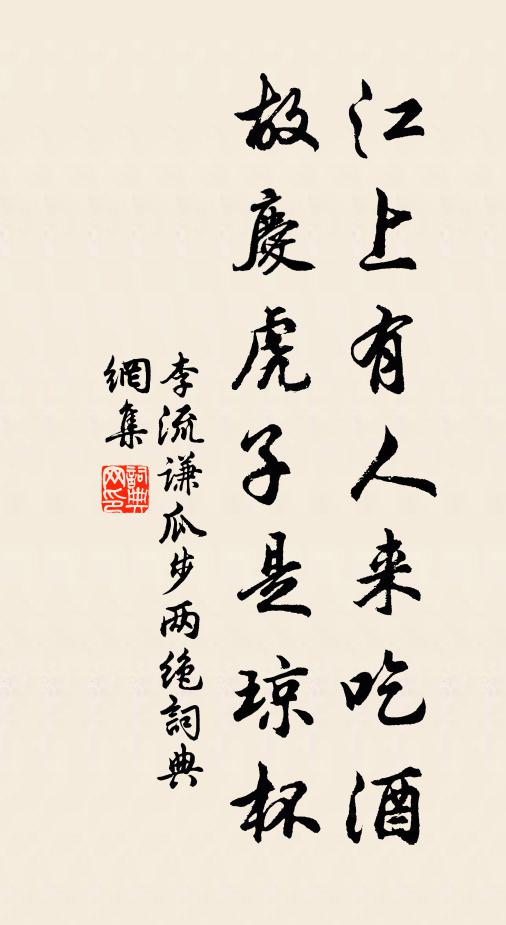 江上有人来吃酒
故慶虎子是琼杯
李流谦瓜步两绝詞典
網集
詞典网印